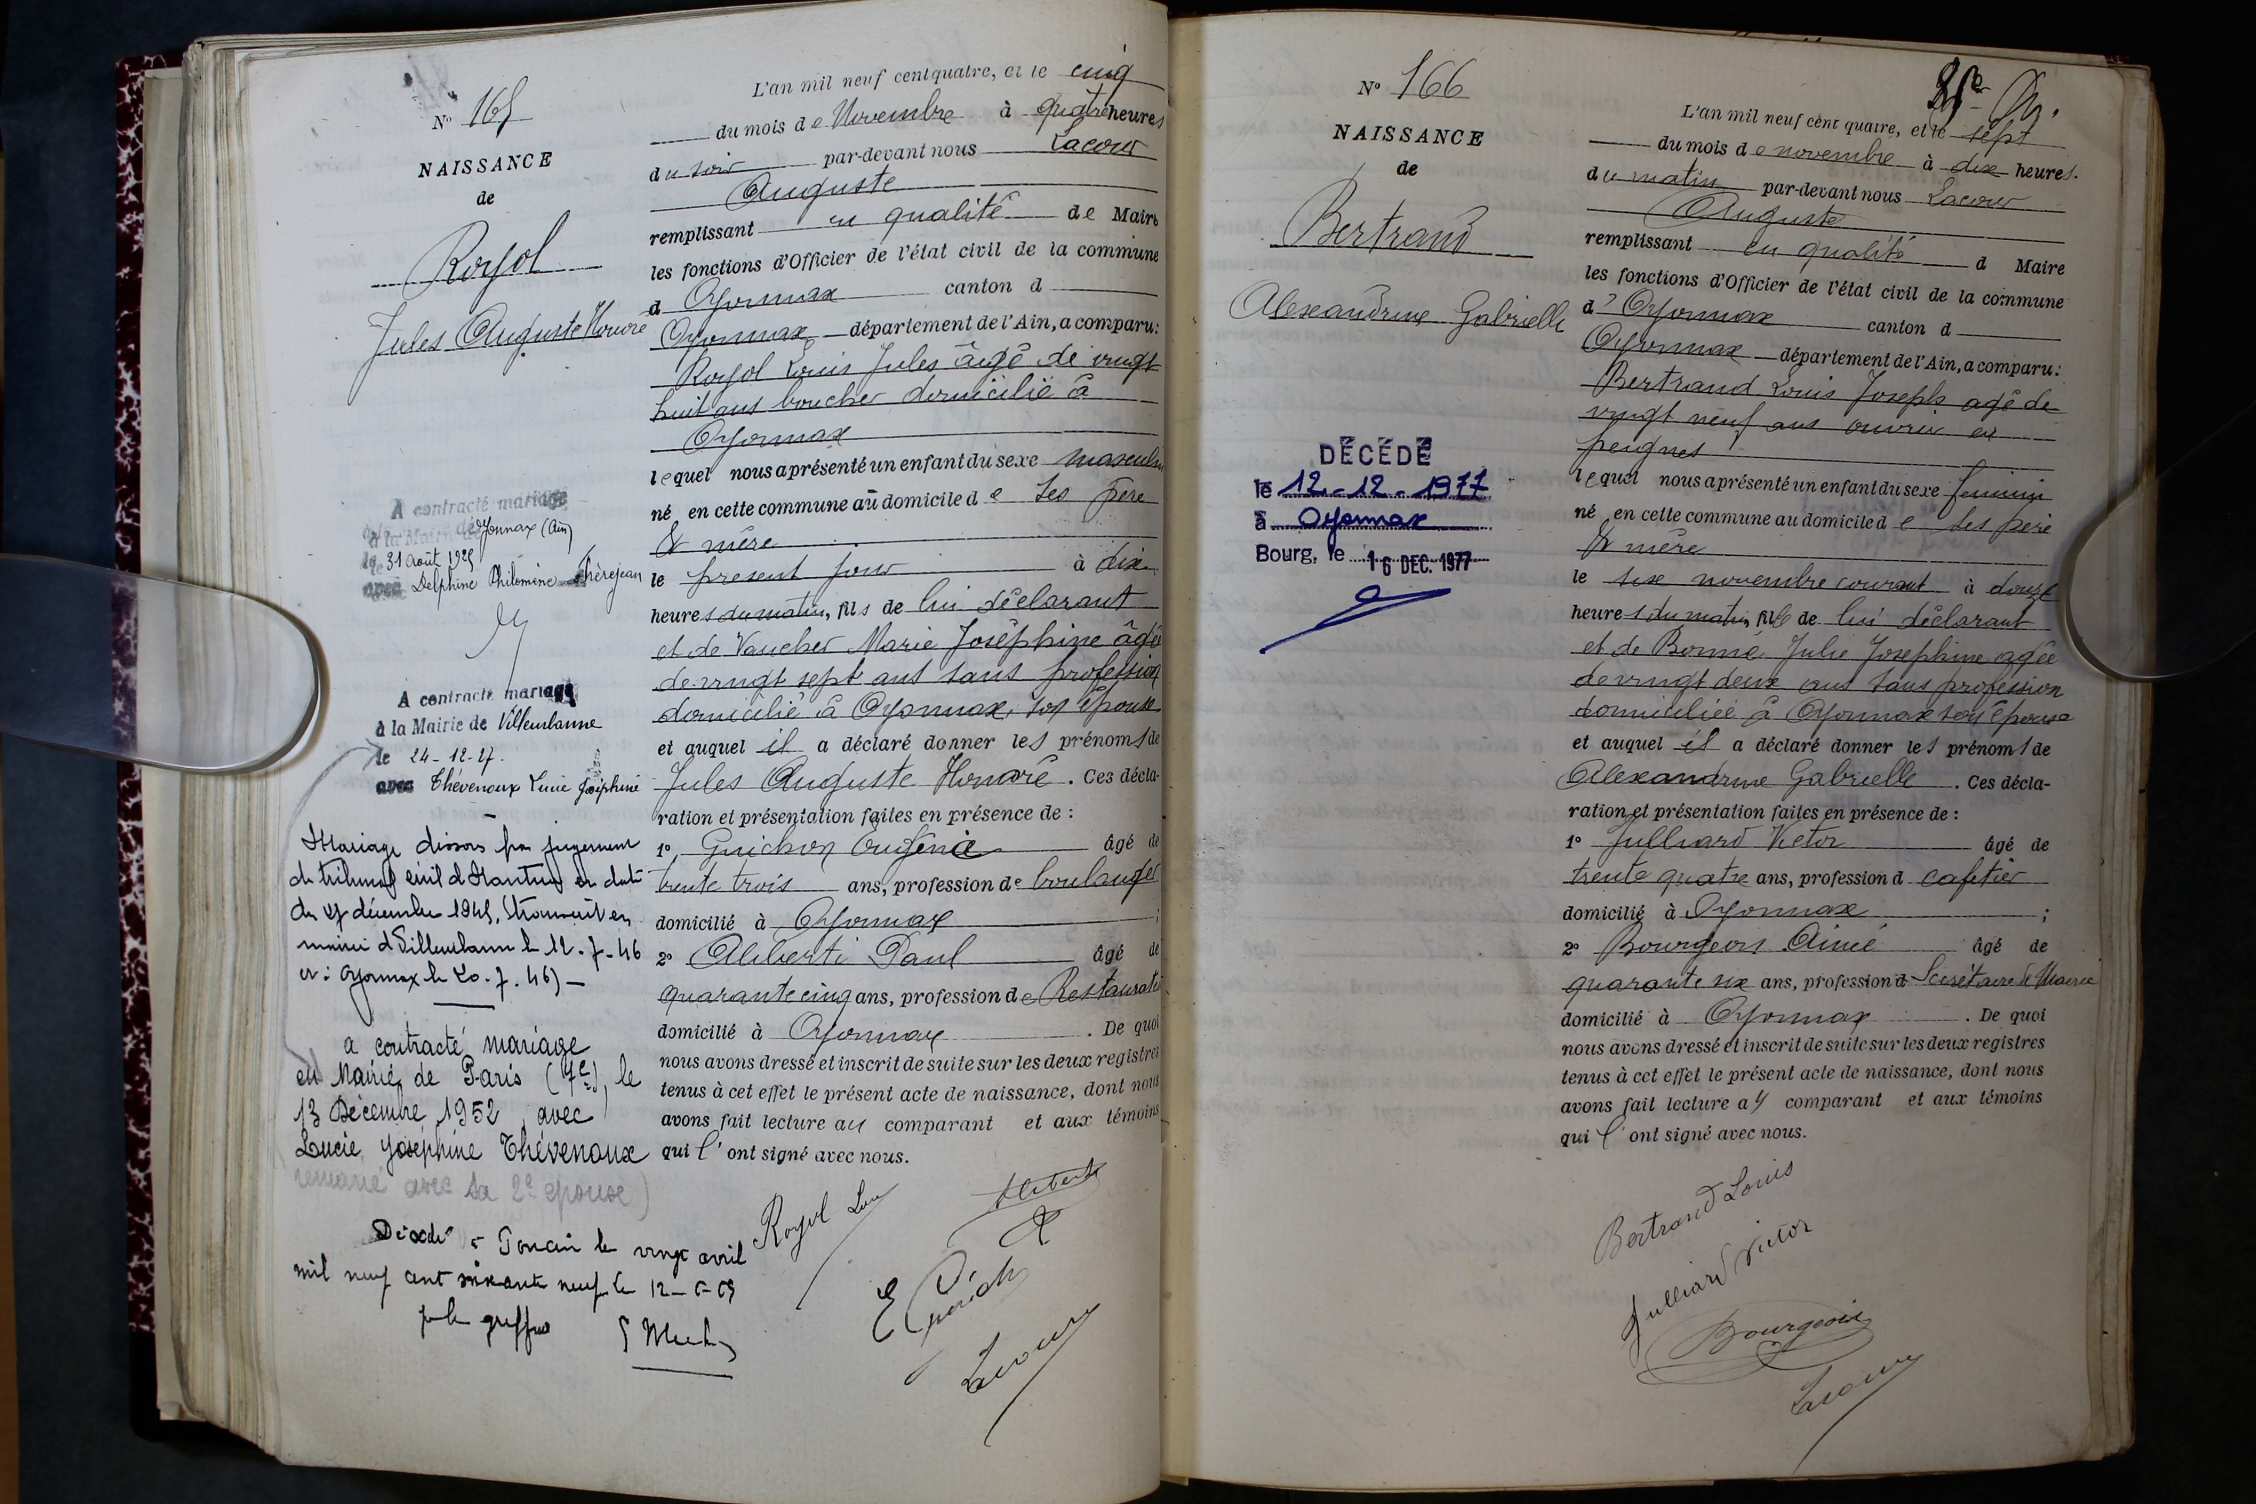 N° 165
NAISSANCE
de
Royol
Jules Auguste Honoré
A contracté mariage
à la Mairie de Oyonnax (Ain)
le 31 Août 1925
avec Delphine Philomène
A contracté mariage
à la Mairie de Villeurbanne
le 24-12-27.
avec Thévenoux Lucie Joséphine
Mariage dissous par jugement
du tribunal civil de Nantua en date
du décembre 1945, transcrit en
mairie de Villeurbanne le 12-7-46
et : Oyonnax le 20.7.46) —
a contracté mariage
en Mairie de Paris (7e), le
13 Décembre 1952 avec
Lucie Joséphine Thévenoux
remarié avec sa 2e épouse)
Décédé à le vingt avril
mil neuf cent soixante neuf le 12-5-69
L'an mil neuf cent quatre, et le cinq
du mois de Novembre à quatre heures
du soir par-devant nous Lacour
Auguste
remplissant en qualité de Maire
les fonctions d'Officier de l'état civil de la commune
d Oyonnax canton d
Oyonnax département de l'Ain, a comparu :
Royol Louis Jules âgé de vingt
huit ans boucher domicilié à
Oyonnax
lequel nous a présenté un enfant du sexe masculin
né en cette commune au domicile de ses père
& mère
le présent jour à dix
heures du matin, fils de lui déclarant
et de Vaucher Marie Joséphine âgée
de vingt sept ans sans profession
domicilié à Oyonnax, son épouse
et auquel il a déclaré donner les prénoms de
Jules Auguste Honoré . Ces décla-
ration et présentation faites en présence de :
1° Guichon Eugène âgé de
trente trois ans, profession de boulanger
domicilié à Oyonnax ;
2° Aliberti Paul âgé de
quarante cinq ans, profession de Restaurateur
domicilié à Oyonnax . De quoi
nous avons dressé et inscrit de suite sur les deux registres
tenus à cet effet le présent acte de naissance, dont nous
avons fait lecture au comparant et aux témoins
qui l'ont signé avec nous.
Royol
Lacour
N° 166
NAISSANCE
de
Bertrand
Alexandrine Gabrielle
DÉCÉDÉ
le 12-12-1977
à Oyonnax
Bourg, le 16 DEC. 1977
L'an mil neuf cent quatre, et le sept
du mois de novembre à dix heures.
du matin par-devant nous Lacour
Auguste
remplissant en qualité d Maire
les fonctions d'Officier de l'état civil de la commune
d' Oyonnax canton d
Oyonnax département de l'Ain, a comparu :
Bertrand Louis Joseph agé de
vingt neuf ans ouvrier en
peignes
lequel nous a présenté un enfant du sexe féminin
né en cette commune au domicile de ses père
& mère
le six novembre courant à douze
heures du matin, fille de lui déclarant
et de Bonne Julie Josephine agée
de vingt deux ans sans profession
domiciliée à Oyonnax son épouse
et auquel il a déclaré donner les prénoms de
Alexandrine Gabrielle . Ces décla-
ration et présentation faites en présence de :
1° Julliard Victor âgé de
trente quatre ans, profession d cafetier
domicilié à Oyonnax ;
2° Bourgeois Aimé âgé de
quarante six ans, profession d Secrétaire de Mairie
domicilié à Oyonnax . De quoi
nous avons dressé et inscrit de suite sur les deux registres
tenus à cet effet le présent acte de naissance, dont nous
avons fait lecture au comparant et aux témoins
qui l'ont signé avec nous.
Bertrand Louis
Julliard Victor
Bourgeois
Lacour